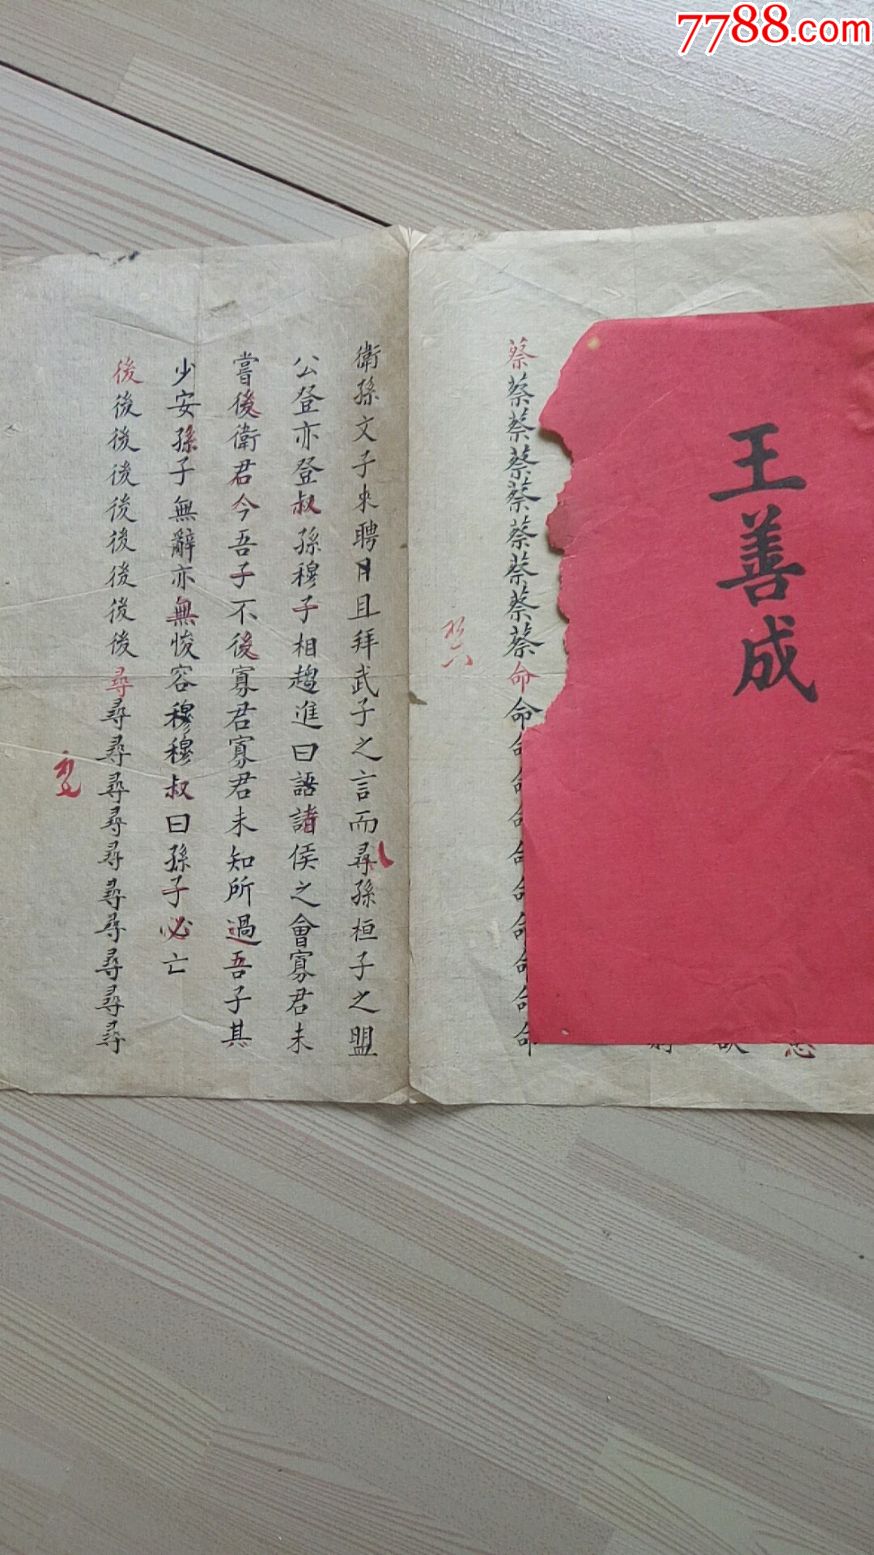 7788.com
王善成
蔡蔡蔡蔡蔡蔡蔡蔡蔡命命命命命命命命命命命
衛孫文子來聘月且拜武子之言而尋孫桓子之盟
公登亦登叔孫穆子相趨進曰語諸侯之會寡君未
嘗後衛君今吾子不後寡君寡君未知所過吾子其
少安孫子無辭亦無悛容穆穆叔曰孫子必亡
後後後後後後後後後尋尋尋尋尋尋尋尋尋尋尋